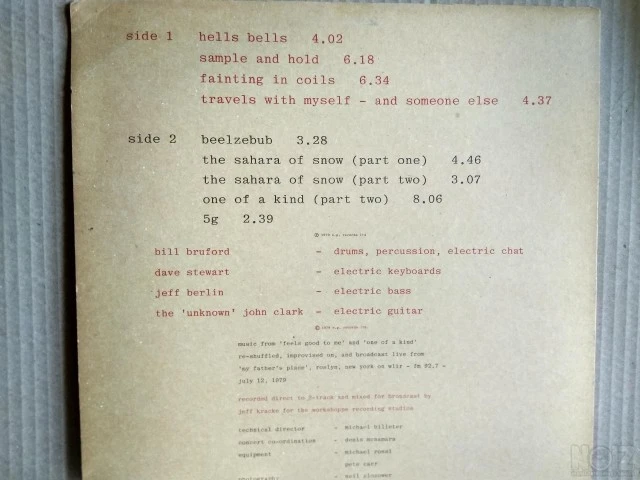 side 1 hells bells 4.02
sample and hold 6.18
fainting in coils 6.34
travels with myself - and someone else 4.37
side 2 beelzebub 3.28
the sahara of snow (part one) 4.46
the sahara of snow (part two) 3.07
one of a kind (part two) 8.06
5g 2.39
bill bruford - drums, percussion, electric chat
dave stewart - electric keyboards
jeff berlin - electric bass
the 'unknown' john clark - electric guitar
music from 'feels good to me' and 'one of a kind'
re-shuffled, improvised on, and broadcast live from
'my father's place', roslyn, new york on wlir - fm 92.7 -
july 12, 1979
recorded direct to 2-track and mixed for broadcast by
jeff kracke for the workshoppe recording studios
technical director - michael
concert co-ordination - mcnamara
equipment - michael
pete carr
neil